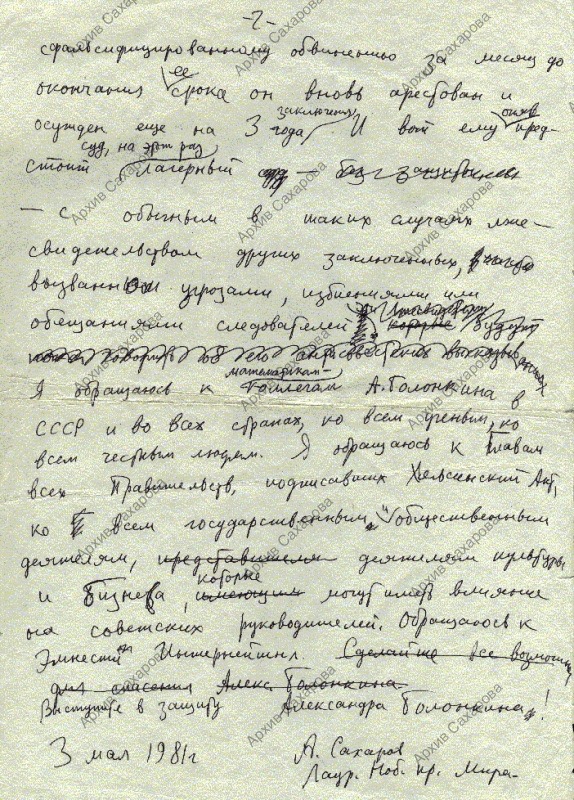 -2-
сфальсифицированному обвинению за месяц до
окончания ее срока он вновь арестован и
осужден еще на 3 года заключения. И вот ему опять пред-
стоит лагерный суд, на этот раз —
— с обычным в таких случаях лже-
свидетельством других заключенных,
вызванным угрозами, избиениями или
обещаниями следователей
Я обращаюсь к математикам - коллегам А. Болонкина в
СССР и во всех странах, ко всем ученым, ко
всем честным людям. Я обращаюсь к Главам
всех Правительств, подписавших Хельсинский Акт,
ко всем государственным и общественным
деятелям, представителям деятелям культуры
и бизнеса, которые имеющим могут иметь влияние
на советских руководителей. Обращаюсь к
Эмнести Интернейшнл. Сделайте все возможное
для спасения Алекс. Болонкина
Выступите в защиту Александра Болонкина!
3 мая 1981г А. Сахаров
Лаур. Ноб. пр. Мира-
Архив Сахарова